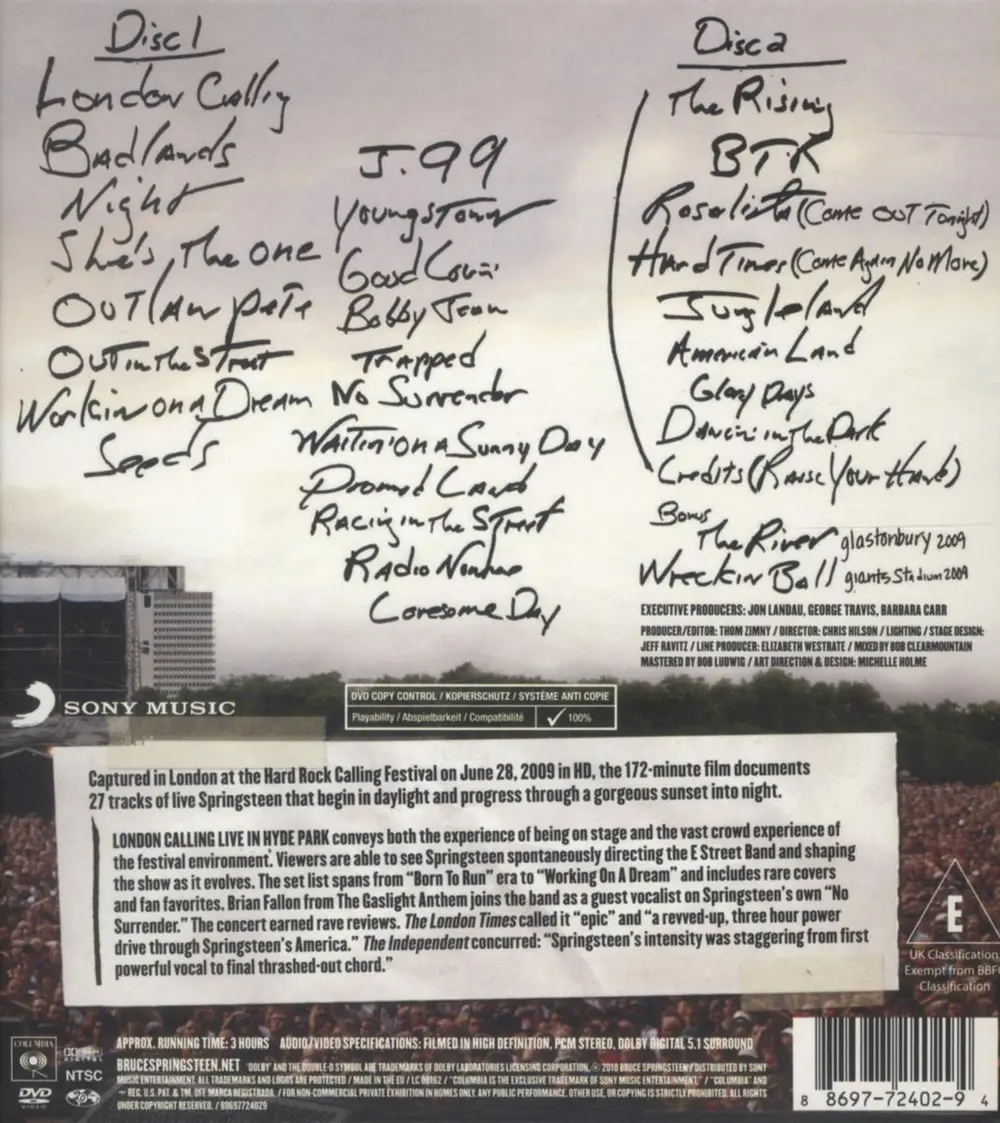 Disc 1
London Callig
Badlands
Night
She's the one
OUTlaw Pete
OUT in the Street
Workin on a Dream
Seeds
J. 99
Youngstown
Good Lovin'
Bobby Jean
Trapped
No Surrender
Waitin' on a Sunny Day
Promised Land
Racing in the Street
Radio Nowhere
Lonesome Day
Disc 2
The Rising
BTR
Rosalita (Come OUT Tonight)
Hard Times (Come Again No More)
Jungleland
American Land
Glory Days
Dancin' in the Dark
Credits (Raise Your Hand)
Bonus
The River glastonbury 2009
Wreckin Ball giants Stadium 2009
EXECUTIVE PRODUCERS: JON LANDAU, GEORGE TRAVIS, BARBARA CARR
PRODUCER/EDITOR: THOM ZIMNY / DIRECTOR: CHRIS HILSON / LIGHTING / STAGE DESIGN:
JEFF RAVITZ / LINE PRODUCER: ELIZABETH WESTRATE / MIXED BY BOB CLEARMOUNTAIN
MASTERED BY BOB LUDWIG / ART DIRECTION & DESIGN: MICHELLE HOLME
SONY MUSIC
DVD COPY CONTROL / KOPIERSCHUTZ / SYSTÈME ANTI COPIE
Playability / Abspielbarkeit / Compatibilité ✓ 100%
Captured in London at the Hard Rock Calling Festival on June 28, 2009 in HD, the 172-minute film documents
27 tracks of live Springsteen that begin in daylight and progress through a gorgeous sunset into night.
LONDON CALLING LIVE IN HYDE PARK conveys both the experience of being on stage and the vast crowd experience of
the festival environment. Viewers are able to see Springsteen spontaneously directing the E Street Band and shaping
the show as it evolves. The set list spans from “Born To Run” era to “Working On A Dream” and includes rare covers
and fan favorites. Brian Fallon from The Gaslight Anthem joins the band as a guest vocalist on Springsteen's own “No
Surrender.” The concert earned rave reviews. The London Times called it “epic” and “a revved-up, three hour power
drive through Springsteen's America.” The Independent concurred: “Springsteen's intensity was staggering from first
powerful vocal to final thrashed-out chord.”
E
UK Classification
Exempt from BBFC
Classification
COLUMBIA
DVD
VIDEO
DOLBY
DIGITAL
NTSC
APPROX. RUNNING TIME: 3 HOURS AUDIO/VIDEO SPECIFICATIONS: FILMED IN HIGH DEFINITION, PCM STEREO, DOLBY DIGITAL 5.1 SURROUND
BRUCESPRINGSTEEN.NET "DOLBY AND THE DOUBLE-D SYMBOL ARE TRADEMARKS OF DOLBY LABORATORIES LICENSING CORPORATION. © 2010 BRUCE SPRINGSTEEN/DISTRIBUTED BY SONY
MUSIC ENTERTAINMENT. ALL TRADEMARKS AND LOGOS ARE PROTECTED / MADE IN THE EU / LC 00162 / "COLUMBIA IS THE EXCLUSIVE TRADEMARK OF SONY MUSIC ENTERTAINMENT." / "COLUMBIA" AND
REG. U.S. PAT. & TM. OFF. MARCA REGISTRADA. / FOR NON-COMMERCIAL PRIVATE EXHIBITION IN HOMES ONLY. ANY PUBLIC PERFORMANCE, OTHER USE, OR COPYING IS STRICTLY PROHIBITED. ALL RIGHTS
UNDER COPYRIGHT RESERVED. / 88697724029
8 8697-72402-9 4